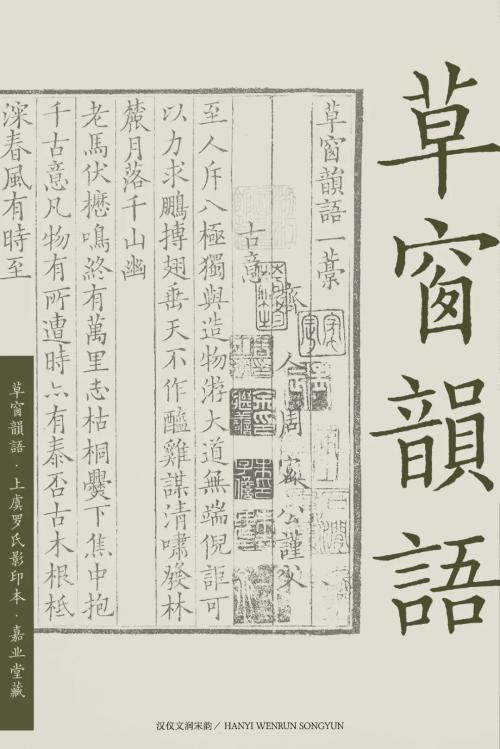 草窗韻語
草窗韻語一藁
齊人周密公謹父
古意
至人斥八極獨與造物游大道無端倪詎可
以力求鵬摶翅垂天不作醯雞謀清嘯發林
麓月落千山幽
老馬伏櫪鳴浴有萬里志枯桐爨下焦中抱
千古意凡物有所遭時亦有泰否古木根柢
深春風有時至
草窗韻語·上虞罗氏影印本·嘉业堂藏
汉仪文润宋韵 / HANYI WENRUN SONGYUN